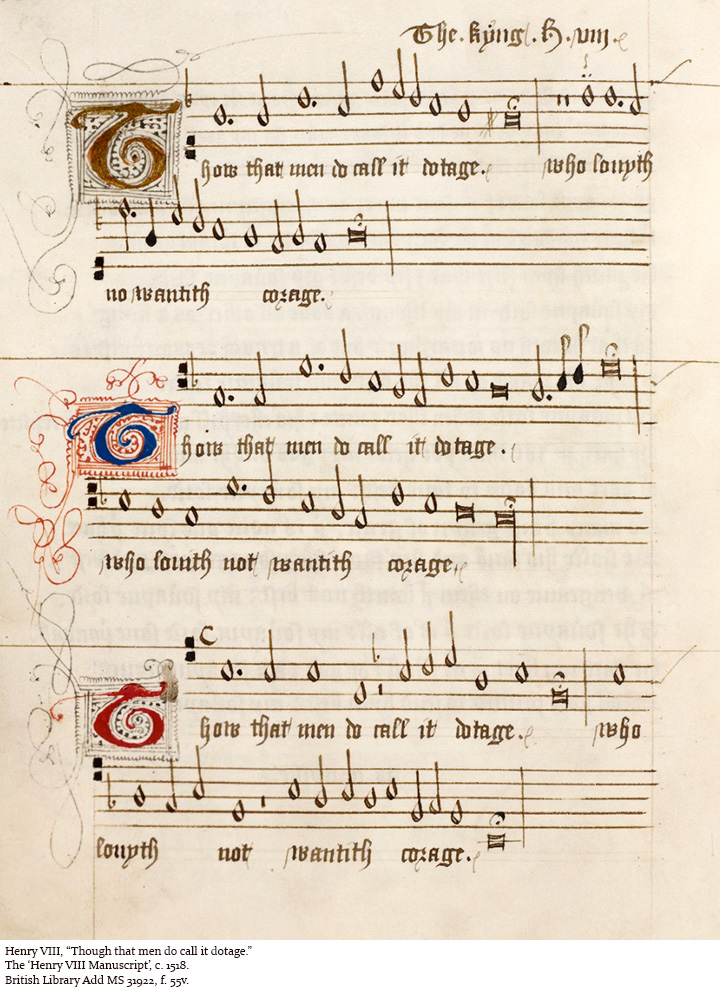 The . kyng . H . viii .
Thow that men do call it dotage .
who lovyth
no wantith corage .
Thow that men do call it dotage .
who louith not wantith corage .
Thow that men do call it dotage .
who
lovyth not wantith corage .
Henry VIII, “Though that men do call it dotage.”
The ‘Henry VIII Manuscript’, c. 1518.
British Library Add MS 31922, f. 55v.